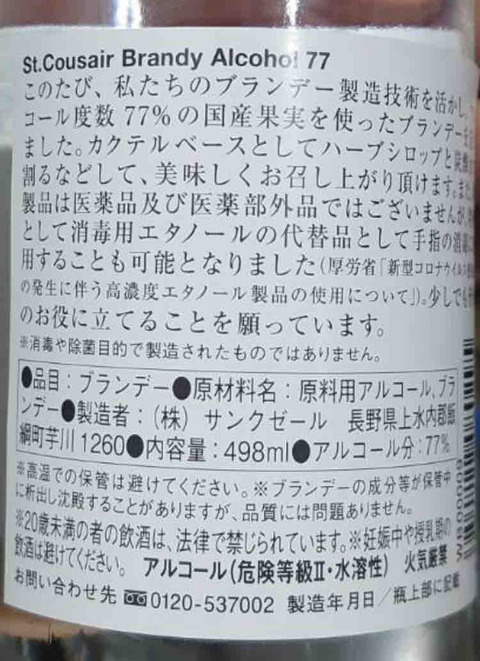 St.Cousair Brandy Alcohol 77
このたび、私たちのブランデー製造技術を活かし、
コール度数77%の国産果実を使ったブランデーを
ました。カクテルベースとしてハーブシロップと炭酸
割るなどして、美味しくお召し上がり頂けます。また
製品は医薬品及び医薬部外品ではございませんが、
として消毒用エタノールの代替品として手指の消毒に
用することも可能となりました(厚労省「新型コロナウイルス
の発生に伴う高濃度エタノール製品の使用について」)。少しでも
のお役に立てることを願っています。
※消毒や除菌目的で製造されたものではありません。
●品目:ブランデー●原材料名:原料用アルコール、ブラ
ンデー●製造者:(株)サンクゼール 長野県上水内郡飯
綱町芋川1260●内容量:498ml●アルコール分:77%
※高温での保管は避けてください。※ブランデーの成分等が保管中
に析出し沈殿することがありますが、品質には問題ありません。
※20歳未満の者の飲酒は、法律で禁じられています。※妊娠中や授乳期の
飲酒は避けてください。 アルコール(危険等級II・水溶性) 火気厳禁
お問い合わせ先 0120-537002 製造年月日/瓶上部に記載